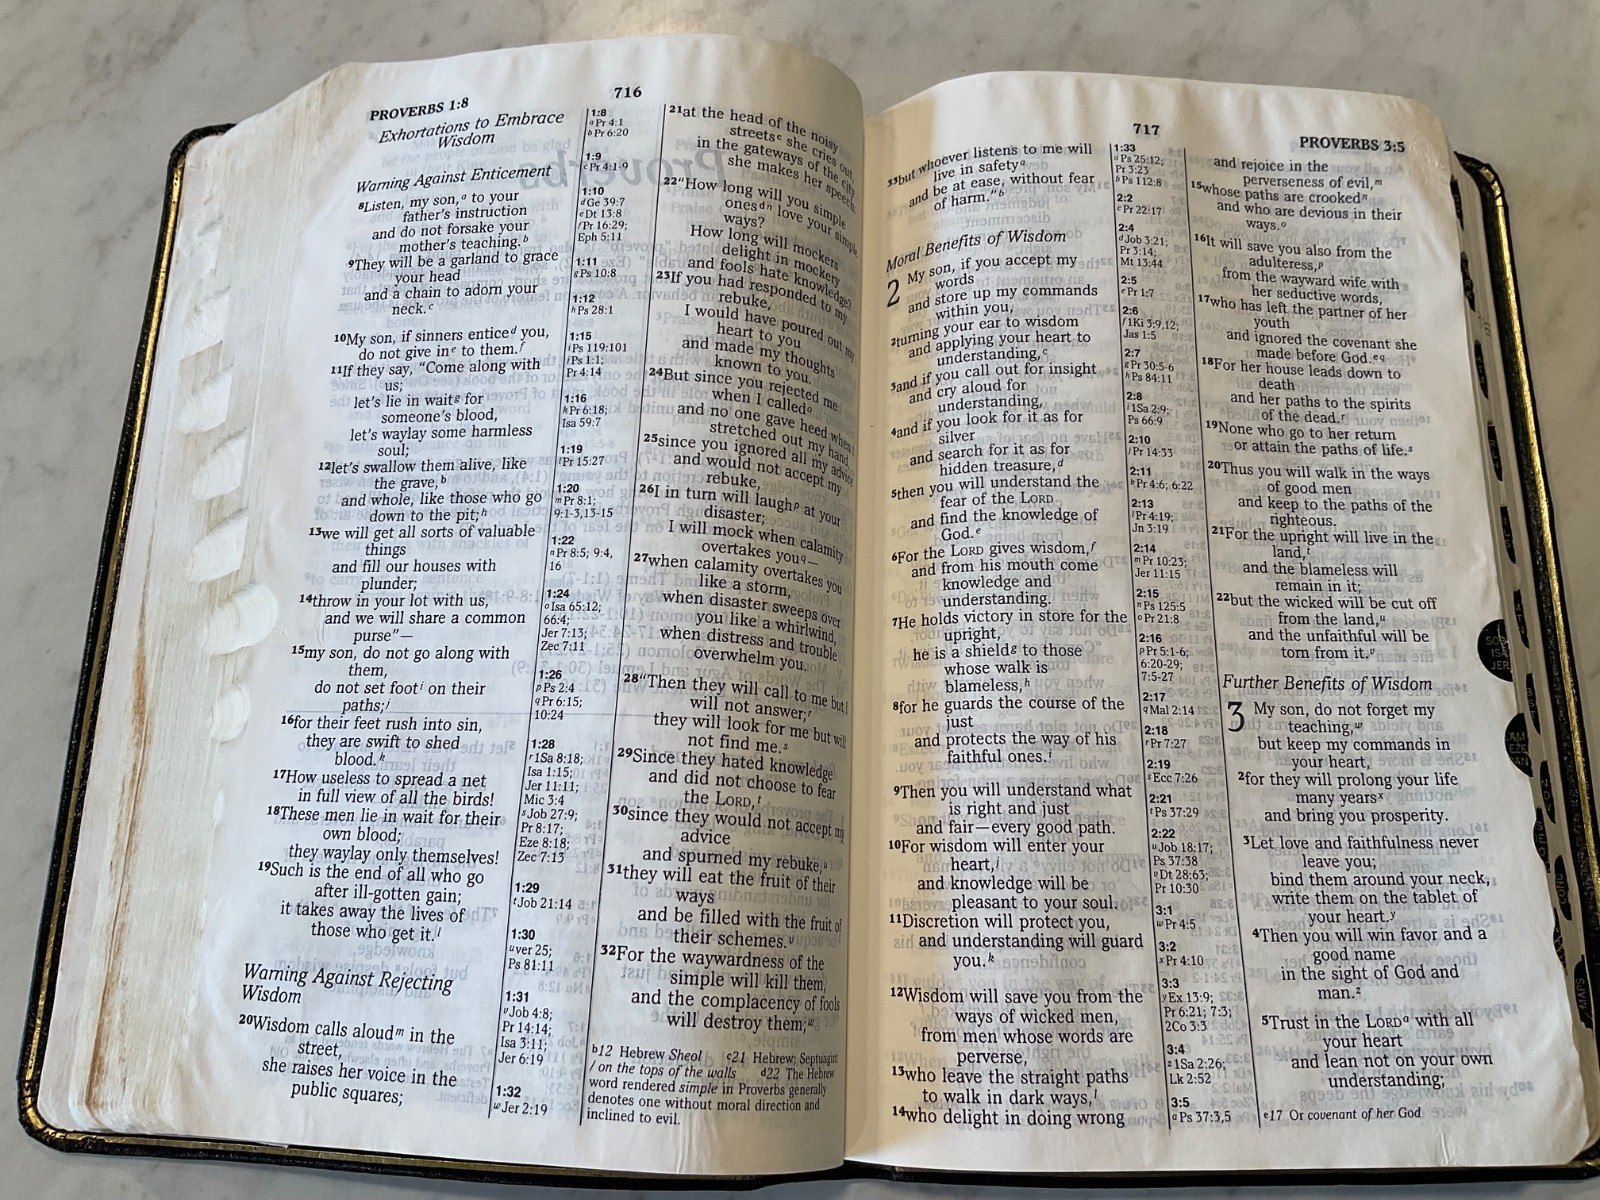 PROVERBS 1:8
716
Exhortations to Embrace
Wisdom
Warning Against Enticement
8Listen, my son,a to your
father's instruction
and do not forsake your
mother's teaching.b
9They will be a garland to grace
your head
and a chain to adorn your
neck.c
10My son, if sinners enticed you,
do not give ine to them.f
11If they say, "Come along with
us;
let's lie in waitg for
someone's blood,
let's waylay some harmless
soul;
12let's swallow them alive, like
the grave,b
and whole, like those who go
down to the pit;h
13we will get all sorts of valuable
things
and fill our houses with
plunder;
14throw in your lot with us,
and we will share a common
purse"—
15my son, do not go along with
them,
do not set footi on their
paths;j
16for their feet rush into sin,
they are swift to shed
blood.k
17How useless to spread a net
in full view of all the birds!
18These men lie in wait for their
own blood;
they waylay only themselves!
19Such is the end of all who go
after ill-gotten gain;
it takes away the lives of
those who get it.l
Warning Against Rejecting
Wisdom
20Wisdom calls aloudm in the
street,
she raises her voice in the
public squares;
1:8
a Pr 4:1
b Pr 6:20
1:9
c Pr 4:1-9
1:10
d Ge 39:7
e Dt 13:8
f Pr 16:29;
Eph 5:11
1:11
g Ps 10:8
1:12
h Ps 28:1
1:15
i Ps 119:101
j Ps 1:1;
Pr 4:14
1:16
k Pr 6:18;
Isa 59:7
1:19
l Pr 15:27
1:20
m Pr 8:1;
9:1-3,13-15
1:22
n Pr 8:5; 9:4,
16
1:24
o Isa 65:12;
66:4;
Jer 7:13;
Zec 7:11
1:26
p Ps 2:4
q Pr 6:15;
10:24
1:28
r 1Sa 8:18;
Isa 1:15;
Jer 11:11;
Mic 3:4
s Job 27:9;
Pr 8:17;
Eze 8:18;
Zec 7:13
1:29
t Job 21:14
1:30
u ver 25;
Ps 81:11
1:31
v Job 4:8;
Pr 14:14;
Isa 3:11;
Jer 6:19
1:32
w Jer 2:19
21at the head of the noisy
streetsc she cries out,
in the gateways of the city
she makes her speech:
22"How long will you simple
onesdn love your simple
ways?
How long will mockers
delight in mockery
and fools hate knowledge?
23If you had responded to my
rebuke,
I would have poured out my
heart to you
and made my thoughts
known to you.
24But since you rejected me
when I calledo
and no one gave heed when I
stretched out my hand,
25since you ignored all my advice
and would not accept my
rebuke,
26I in turn will laughp at your
disaster;
I will mock when calamity
overtakes youq—
27when calamity overtakes you
like a storm,
when disaster sweeps over
you like a whirlwind,
when distress and trouble
overwhelm you.
28"Then they will call to me but I
will not answer;r
they will look for me but will
not find me.s
29Since they hated knowledge
and did not choose to fear
the LORD,t
30since they would not accept my
advice
and spurned my rebuke,u
31they will eat the fruit of their
ways
and be filled with the fruit of
their schemes.v
32For the waywardness of the
simple will kill them,
and the complacency of fools
will destroy them;w
b12 Hebrew Sheol c21 Hebrew; Septuagint
/ on the tops of the walls d22 The Hebrew
word rendered simple in Proverbs generally
denotes one without moral direction and
inclined to evil.
717
PROVERBS 3:5
33but whoever listens to me will
live in safetya
and be at ease, without fear
of harm."b
Moral Benefits of Wisdom
2 My son, if you accept my
words
and store up my commands
within you,
2turning your ear to wisdom
and applying your heart to
understanding,c
3and if you call out for insight
and cry aloud for
understanding,
4and if you look for it as for
silver
and search for it as for
hidden treasure,d
5then you will understand the
fear of the LORD
and find the knowledge of
God.e
6For the LORD gives wisdom,f
and from his mouth come
knowledge and
understanding.
7He holds victory in store for the
upright,
he is a shieldg to those
whose walk is
blameless,h
8for he guards the course of the
just
and protects the way of his
faithful ones.i
9Then you will understand what
is right and just
and fair—every good path.
10For wisdom will enter your
heart,j
and knowledge will be
pleasant to your soul.
11Discretion will protect you,
and understanding will guard
you.k
12Wisdom will save you from the
ways of wicked men,
from men whose words are
perverse,
13who leave the straight paths
to walk in dark ways,l
14who delight in doing wrong
1:33
a Ps 25:12;
Pr 3:23
b Ps 112:8
2:2
c Pr 22:17
2:4
d Job 3:21;
Pr 3:14;
Mt 13:44
2:5
e Pr 1:7
2:6
f 1Ki 3:9,12;
Jas 1:5
2:7
g Pr 30:5-6
h Ps 84:11
2:8
i 1Sa 2:9;
Ps 66:9
2:10
j Pr 14:33
2:11
k Pr 4:6; 6:22
2:13
l Pr 4:19;
Jn 3:19
2:14
m Pr 10:23;
Jer 11:15
2:15
n Ps 125:5
o Pr 21:8
2:16
p Pr 5:1-6;
6:20-29;
7:5-27
2:17
q Mal 2:14
2:18
r Pr 7:27
2:19
s Ecc 7:26
2:21
t Ps 37:29
2:22
u Job 18:17;
Ps 37:38
v Dt 28:63;
Pr 10:30
3:1
w Pr 4:5
3:2
x Pr 4:10
3:3
y Ex 13:9;
Pr 6:21; 7:3;
2Co 3:3
3:4
z 1Sa 2:26;
Lk 2:52
3:5
a Ps 37:3,5
and rejoice in the
perverseness of evil,m
15whose paths are crookedn
and who are devious in their
ways.o
16It will save you also from the
adulteress,p
from the wayward wife with
her seductive words,
17who has left the partner of her
youth
and ignored the covenant she
made before God.eq
18For her house leads down to
death
and her paths to the spirits
of the dead.r
19None who go to her return
or attain the paths of life.s
20Thus you will walk in the ways
of good men
and keep to the paths of the
righteous.
21For the upright will live in the
land,t
and the blameless will
remain in it;
22but the wicked will be cut off
from the land,u
and the unfaithful will be
torn from it.v
Further Benefits of Wisdom
3 My son, do not forget my
teaching,w
but keep my commands in
your heart,
2for they will prolong your life
many yearsx
and bring you prosperity.
3Let love and faithfulness never
leave you;
bind them around your neck,
write them on the tablet of
your heart.y
4Then you will win favor and a
good name
in the sight of God and
man.z
5Trust in the LORDa with all
your heart
and lean not on your own
understanding;
e17 Or covenant of her God
ISA
JER
LAM
EZE
DAN
CONC
MAPS